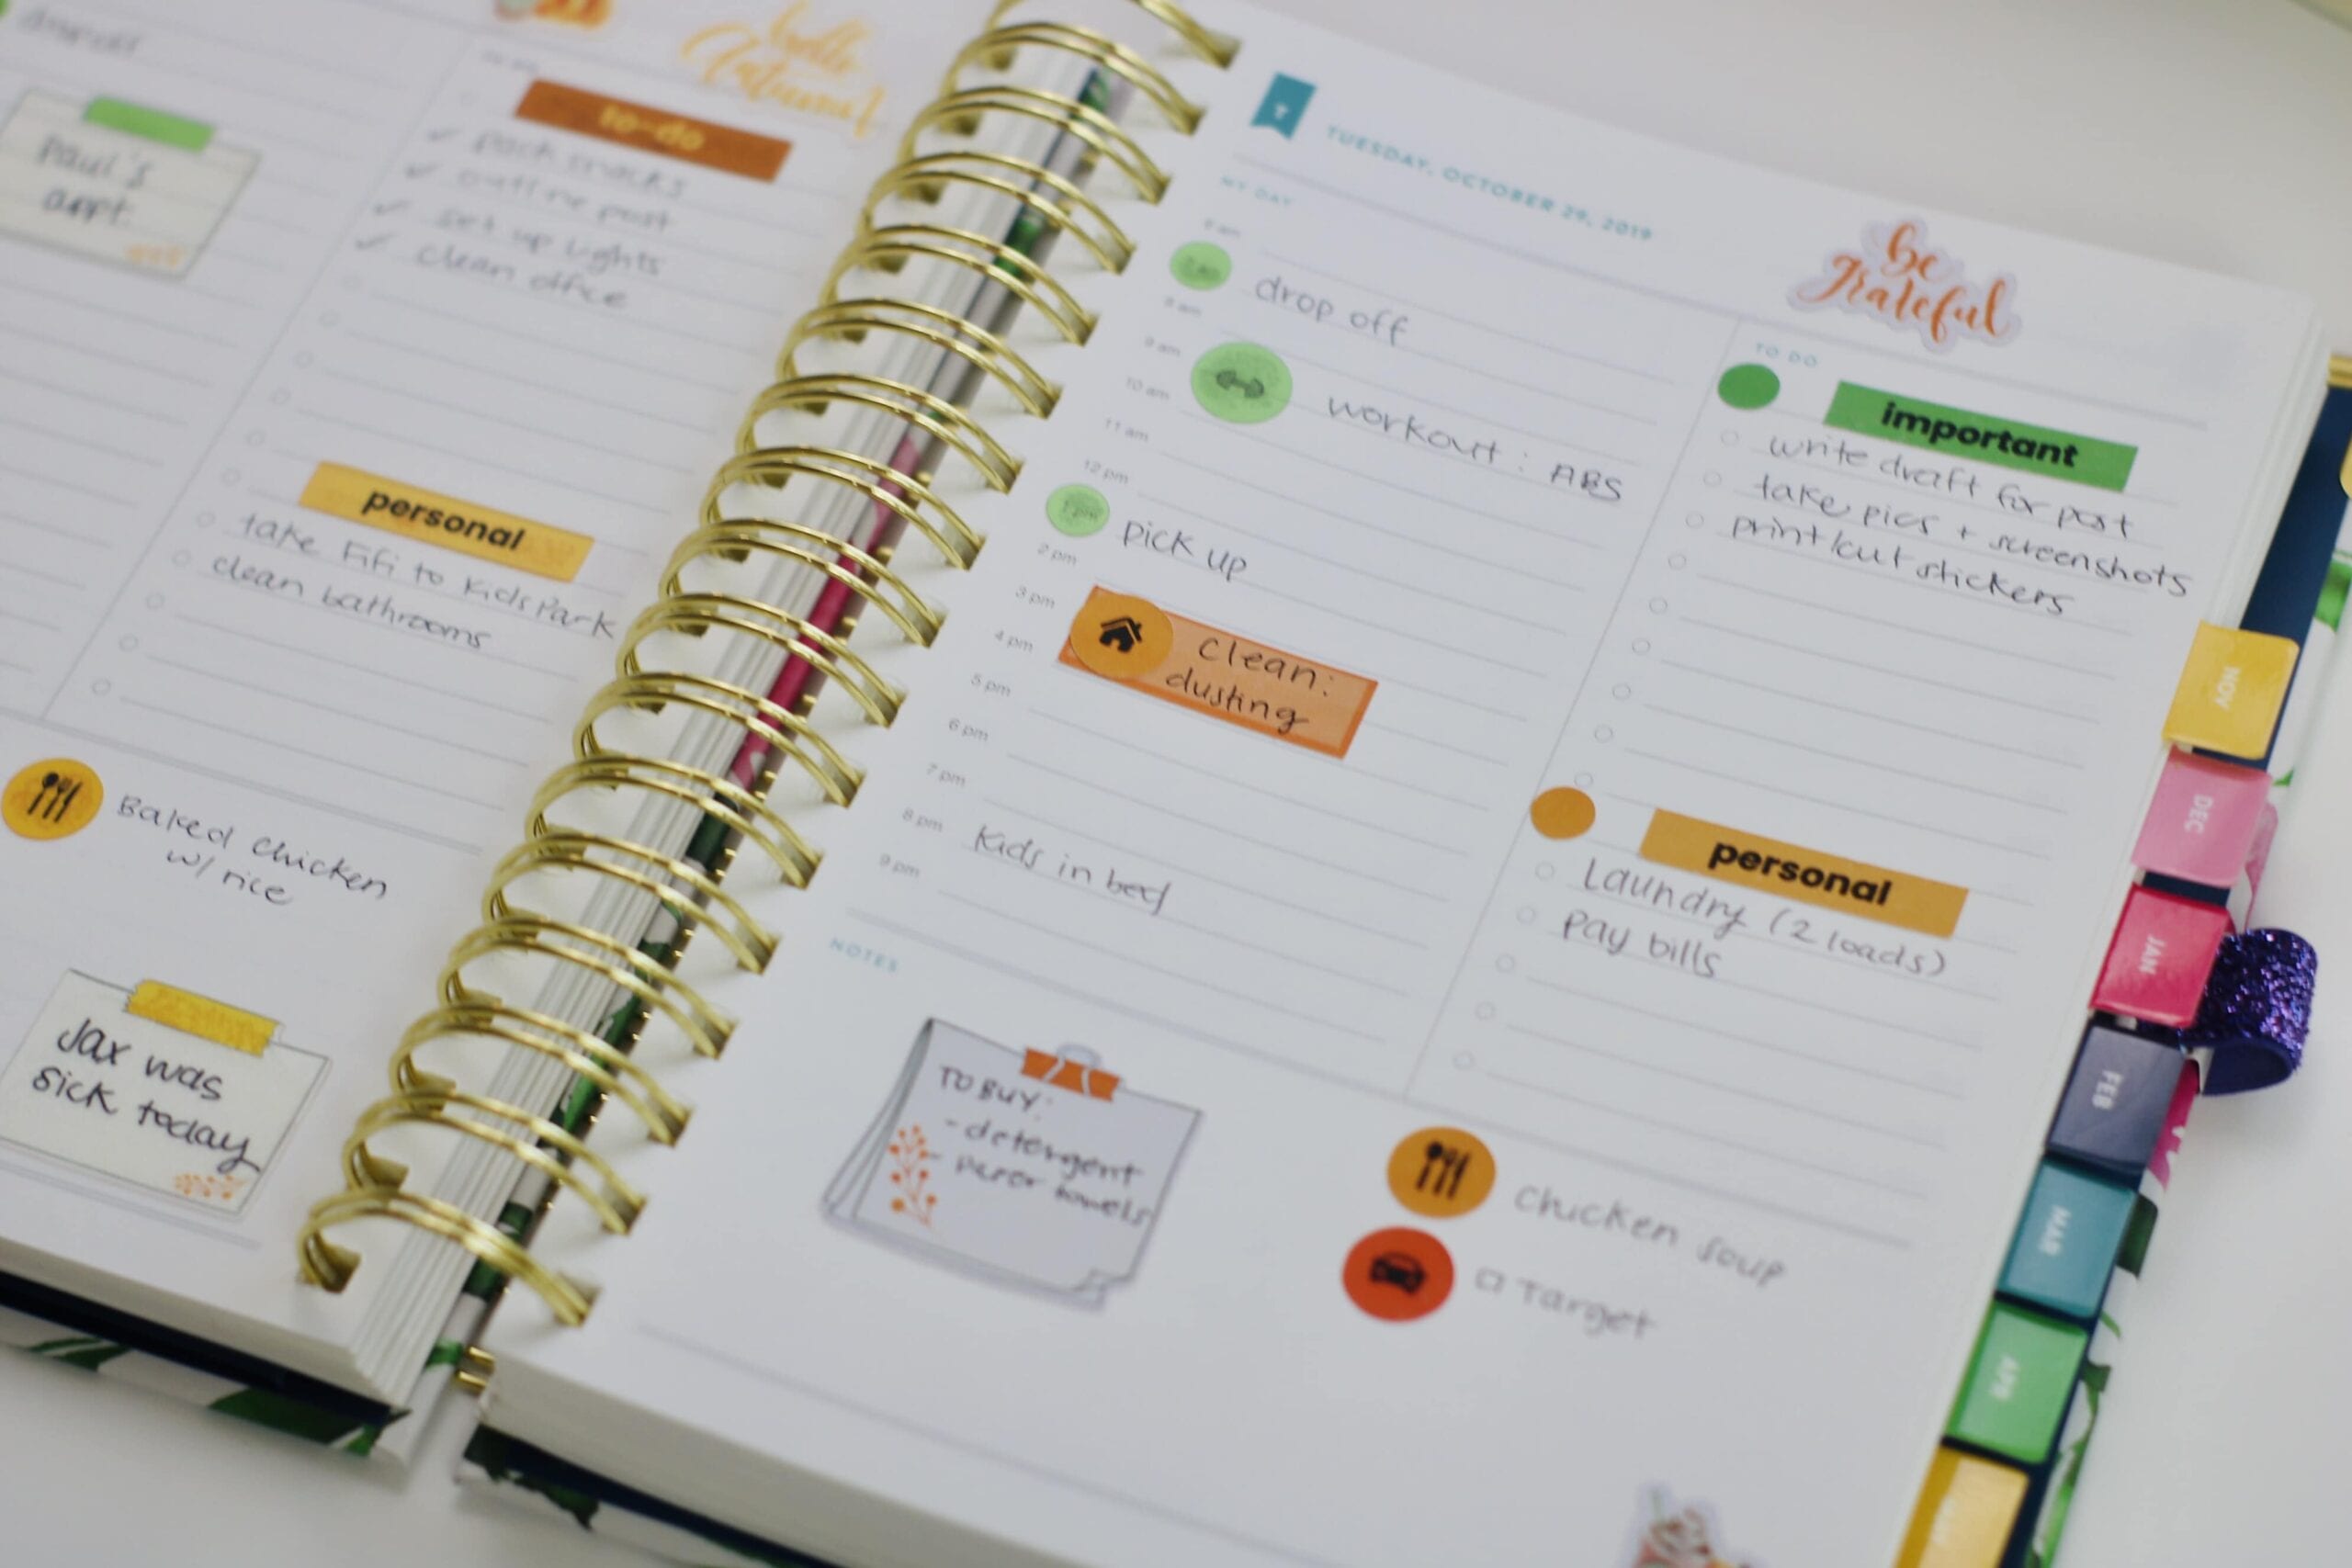 hello
Autumn
Paul's
appt.
to-do
pack snacks
outline post
set up lights
clean office
personal
take Fifi to KidsPark
clean bathrooms
Baked Chicken
w/ rice
Jax was
sick today
T
TUESDAY, OCTOBER 29, 2019
be
grateful
MY DAY
drop off
8 am
9 am
10 am
workout : ABS
11 am
12 pm
1 pm
pick up
2 pm
3 pm
4 pm
clean:
dusting
5 pm
6 pm
7 pm
8 pm
Kids in bed
9 pm
TO DO
important
write draft for post
take pics + screenshots
print/cut stickers
personal
Laundry (2 loads)
Pay bills
NOTES
TO BUY:
- detergent
- paper towels
Chicken soup
Target
NOV
DEC
JAN
FEB
MAR
APR